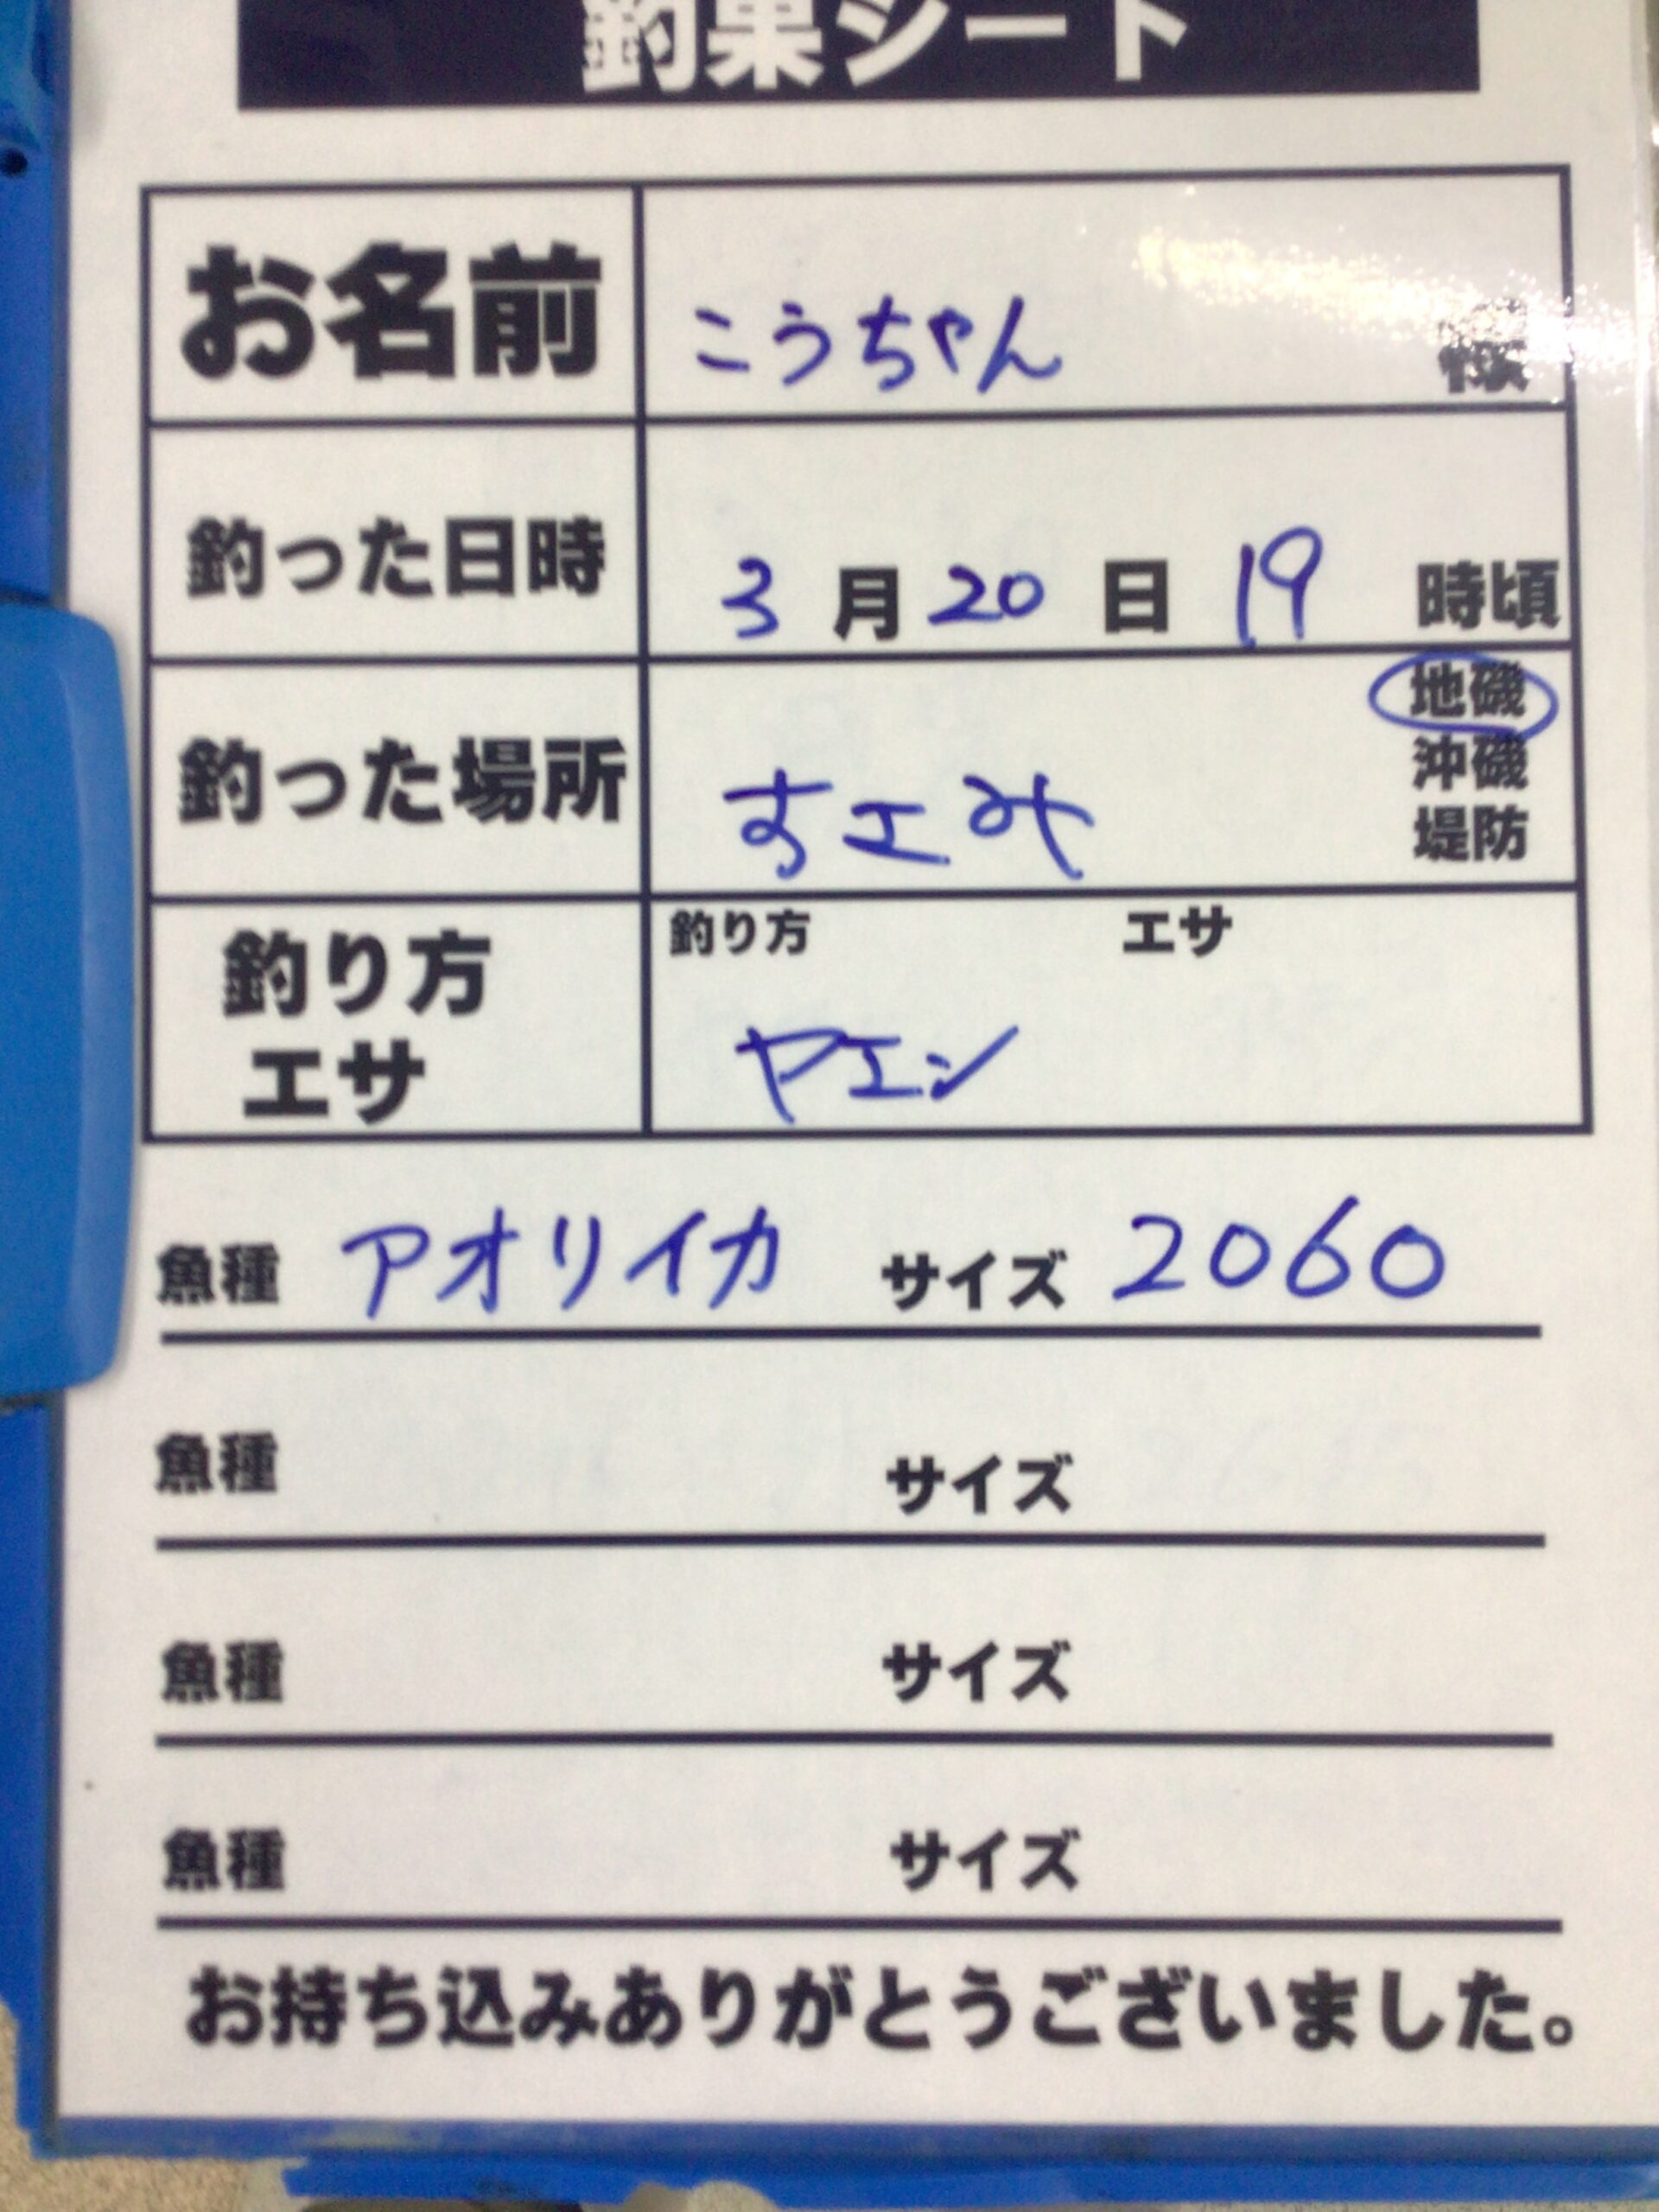 釣果シート
お名前 こうちゃん 様
釣った日時 3月20日19時頃
地磯
釣った場所 すエみ 沖磯
堤防
釣り方 エサ
釣り方
エサ ヤエン
魚種 アオリイカ サイズ 2060
魚種 サイズ
魚種 サイズ
魚種 サイズ
お持ち込みありがとうございました。